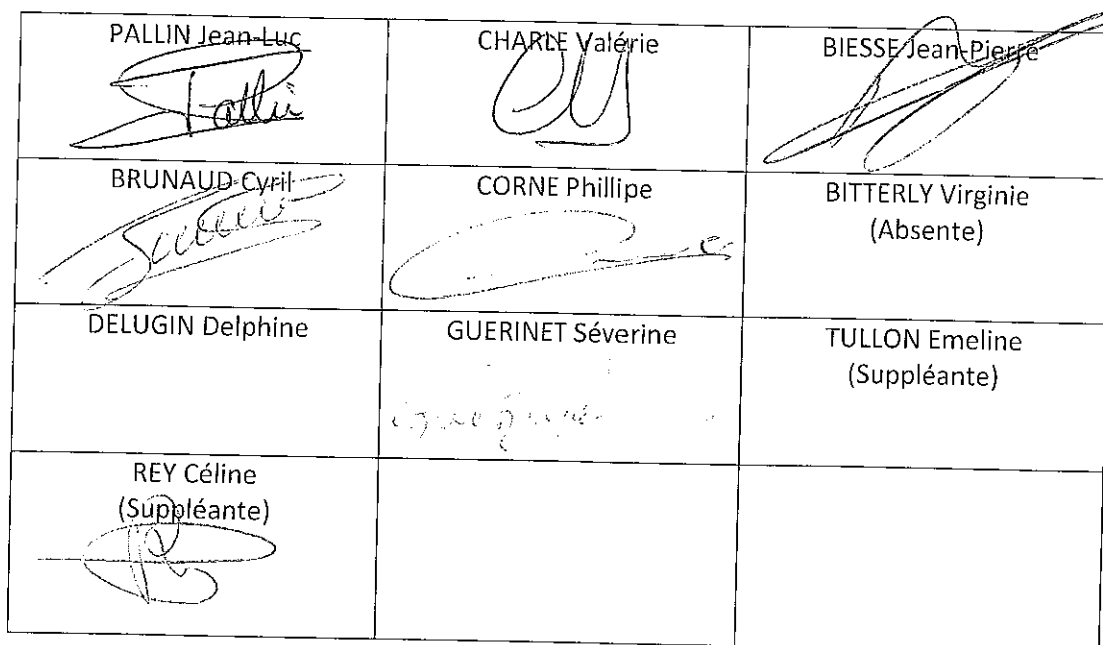 PALLIN Jean-Luc
Pallin
CHARLE Valérie
BIESSE Jean-Pierre
BRUNAUD Cyril
CORNE Phillipe
BITTERLY Virginie
(Absente)
DELUGIN Delphine
GUERINET Séverine
TULLON Emeline
(Suppléante)
REY Céline
(Suppléante)